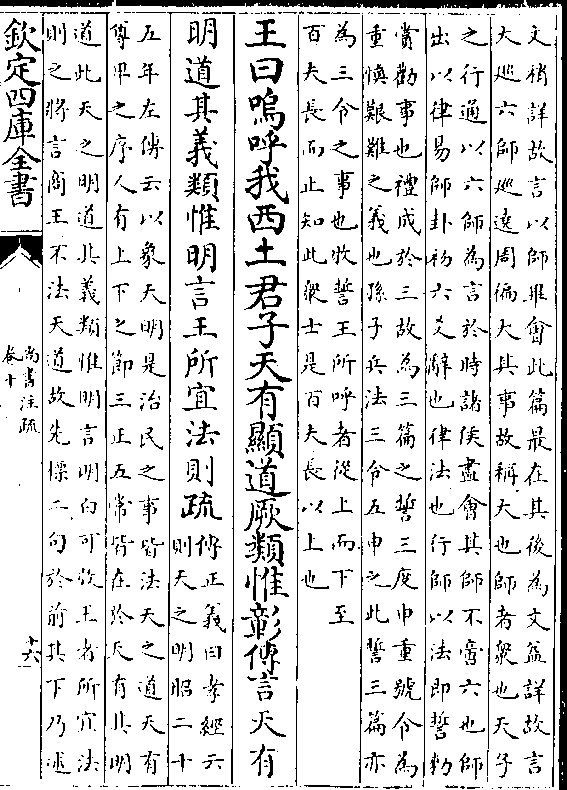 文稍詳故言以師畢會此篇最在其後為文益詳故言
大巡六師巡遶周徧大其事故稱大也師者衆也天子
之行通以六師為言於時諸侯盡會其師不啻六也師
出以律易師卦初六爻辭也律法也行師以法即誓勑
賞勸事也禮成於三故為三篇之誓三度申重號令為
重慎艱難之義也孫子兵法三令五申之此誓三篇亦
為三令之事也牧誓王所呼者從上而下至
百夫長而止知此衆士是百夫長以上也
王曰嗚呼我西土君子天有顯道厥類惟彰傳言天有
明道其義類惟明言王所宜法則疏傳正義曰孝經云
則天之明昭二十
五年左傳云以象天明是治民之事皆法天之道天有
尊卑之序人有上下之節三正五常皆在於天有其明
道此天之明道其義類惟明言明白可效王者所宜法
則之將言商王不法天道故先標二句於前其下乃述
欽定四庫全書
尚書注疏
卷十
十六